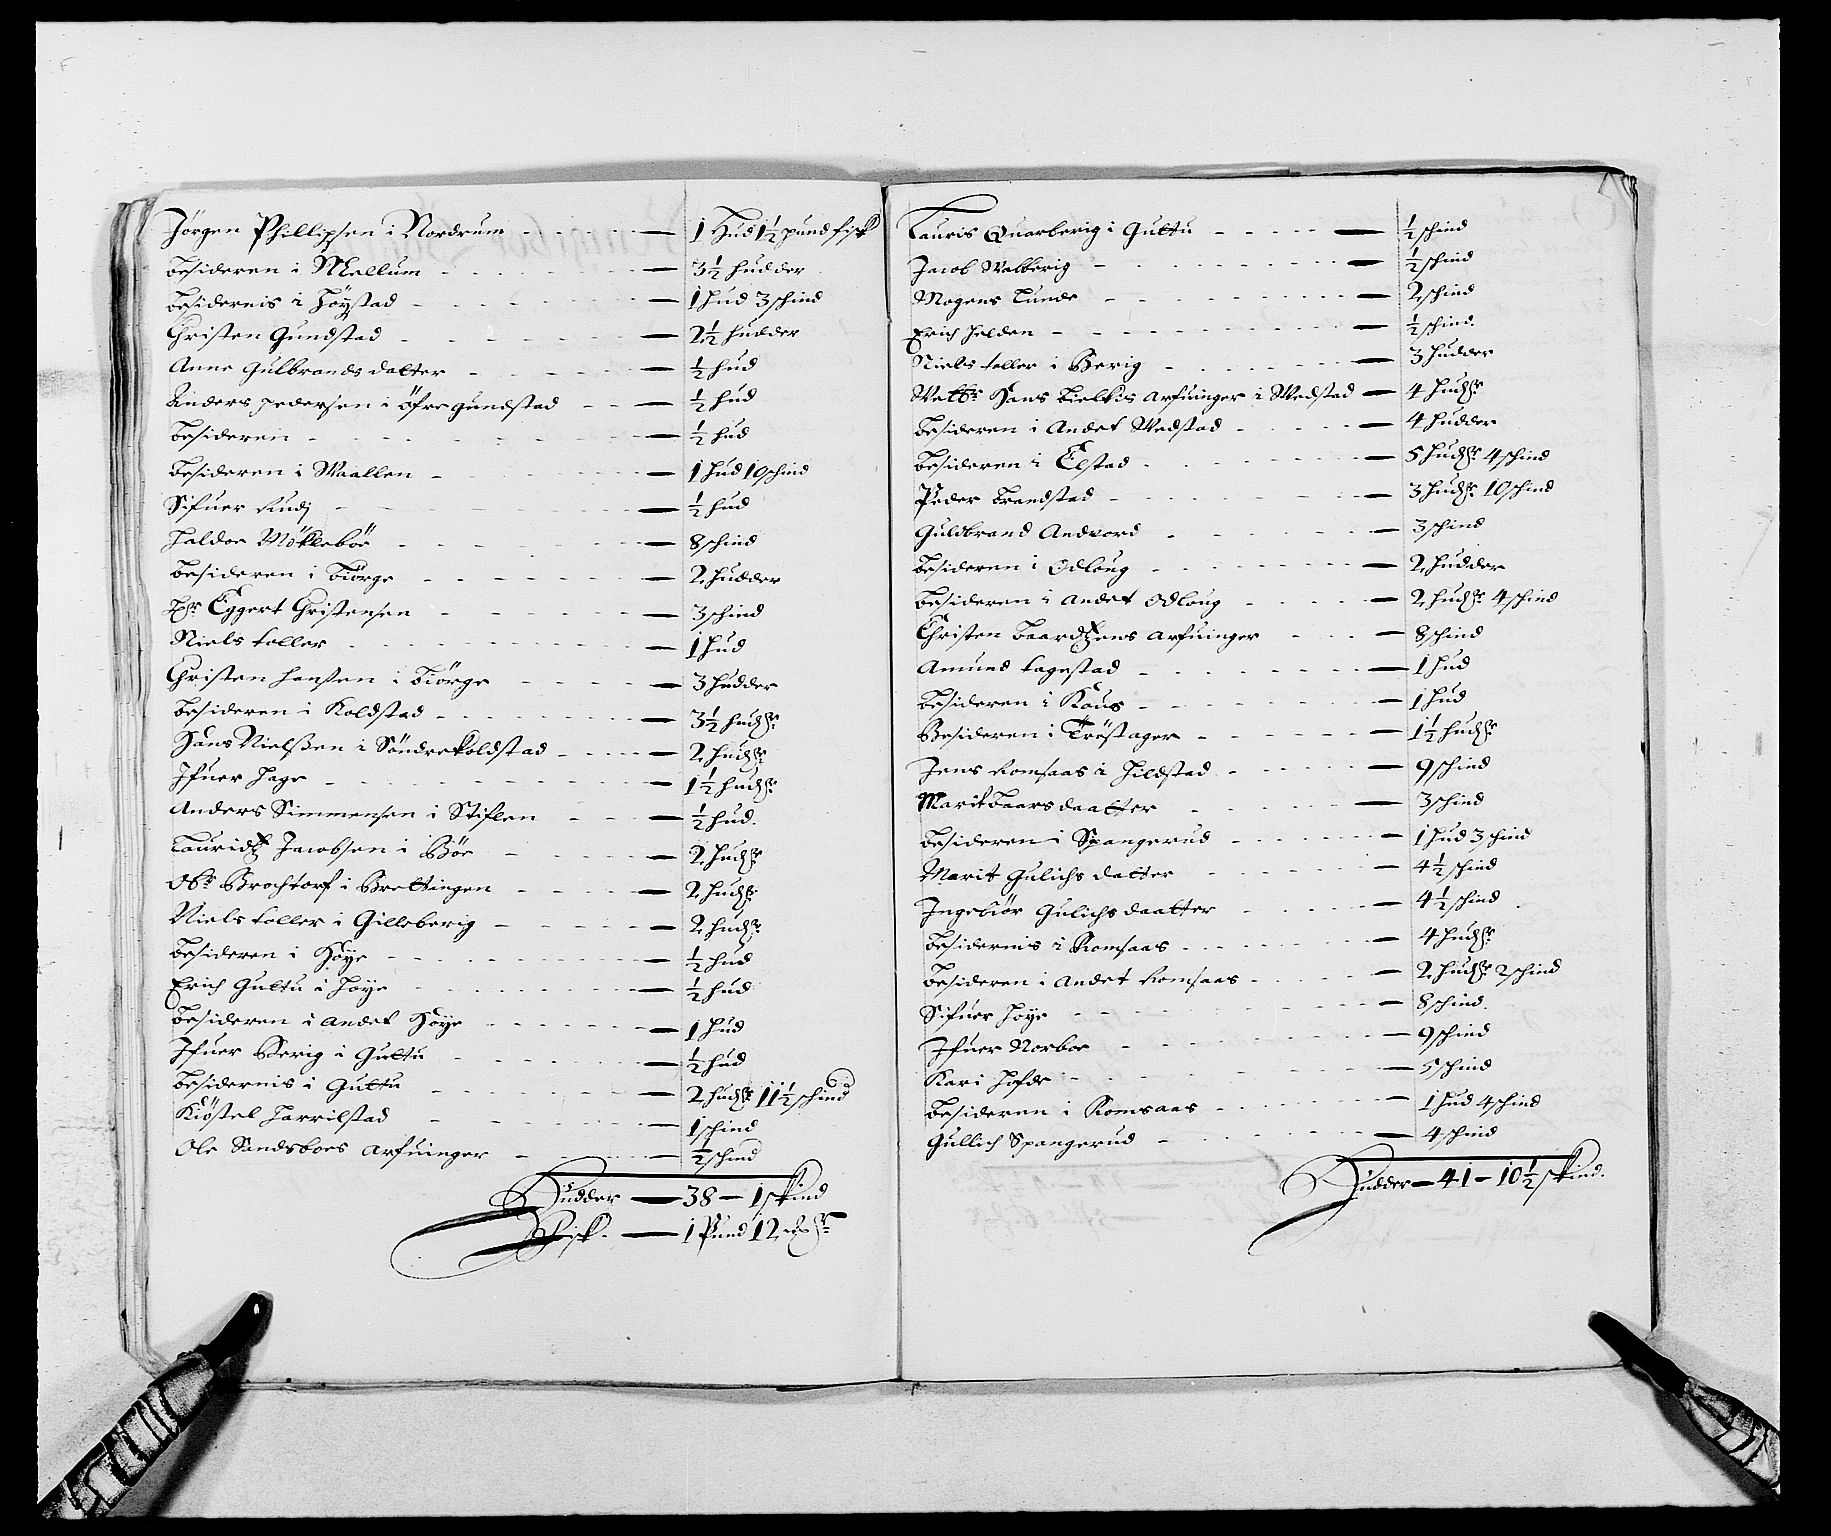 Jörgen Phillipsen i Nordrum — 1 Hud 1½ pund fisk
Besideren i Mellum — 3½ hudder
Besidernis i Höystad — 1 hud 3 schind
Christen Gundstad — 2½ hudder
Anne Gulbrands datter — ½ hud
Anders Pedersen i Öfre gundstad — ½ hud
Besideren — ½ hud
Besideren i Waallen — 1 hud 10 schind
Sifuer Rudj — ½ hud
Haldor Mökleböe — 8 schind
Besideren i Biörge — 2 hudder
Hr Eggert Christensen — 3 schind
Niels toller — 1 hud
Christen Hanßen i Biörge — 3 hudder
Besideren i Koldstad — 3½ hudr
Hans Nielßen i Söndre Koldstad — 2 hudr
Ifuer Hage — 1½ hudr
Anders Simmensen i Stiflen — ½ hud
Lauridtz Jacobsen i Böe — 2 hudr
Obr Brochtorf i Brettingen — 2 hudr
Niels toller i Gilleberig — 2 hudr
Besideren i Höye — ½ hud
Erich Guttu i Höye — ½ hud
Besideren i Andet Höye — 1 hud
Ifuer Berig i Guttu — ½ hud
Besidernis i Guttu — 2 hudr 11½ schind
Kiöstel Harrilstad — 1 schind
Ole Sandsboes Arfuinger — ½ schind
Hudder — 38 — 1 skind
Fisk. — 1 Pund 12
Lauris Quarberig i Guttu — ½ schind
Jacob Walberig — ½ schind
Mogens Lunde — 2 schind
Erich Halden — ½ schind
Niels toller i Berig — 3 hudder
Hans Bielkis Arfuinger i Wedstad — 4 hudr
Besideren i Andet Wedstad — 4 hudder
Besideren i Elstad — 5 hudr 4 schind
Peder Brandstad — 3 hudr 10 schind
Guldbrand Andvord — 3 schind
Besideren i Odloug — 2 hudder
Besideren i Andet Odloug — 2 hudr 4 schind
Christen Baardtzens Arfuinger — 8 schind
Amund Fagestad — 1 hud
Besideren i Kous — 1 hud
Besideren i Tröstager — 1½ hudr
Jens Romsaas i Hildstad — 9 schind
Marit Laars daatter — 3 schind
Besideren i Spangerud — 1 hud 3 schind
Marit Gulichs datter — 4½ schind
Ingebiör Gulichs daatter — 4½ schind
Besidernis i Romsaas — 4 hudr
Besideren i Andet Romsaas — 2 hudr 2 schind
Sifuer Höye — 8 schind
Ifuer Norboe — 9 schind
Kari Hofde — 5 schind
Besideren i Romsaas — 1 hud 4 schind
Gullich Spangerud — 4 schind
Hudder — 41 — 10½ skind.